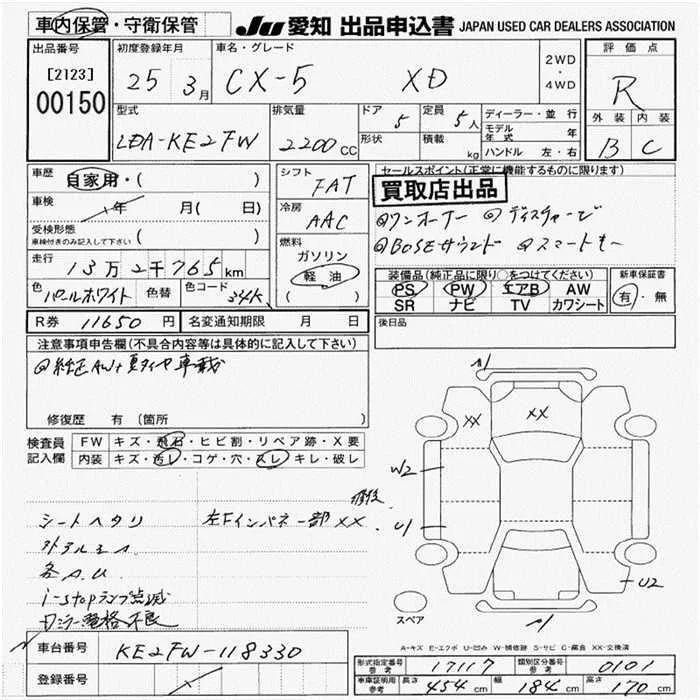 車内保管・守衛保管
JU 愛知 出品申込書 JAPAN USED CAR DEALERS ASSOCIATION
出品番号
[2123]
00150
初度登録年月
25 3月
車名・グレード
CX-5 XD
2WD
・
4WD
評価点
R
外装 内装
B C
型式
LDA-KE2FW
排気量
2200 CC
ドア 5
形状
定員 5人
積載 kg
ディーラー・並行
モデル年式 年
ハンドル 左・右
車歴 自家用・( )
車検 年 月( 日)
受検形態
車検付きのみ記入して下さい ( )
走行 13万2千765km
色 パールホワイト 色替 色コード 34K
シフト
FAT
冷房
AAC
燃料
ガソリン
軽油
( )
セールスポイント(正常に機能するものに限ります)
買取店出品
ワンオーナー ディスチャージ
BOSEサウンド スマートキー
装備品(純正品に限り○をつけてください)
PS PW エアB AW
SR ナビ TV カワシート
新車保証書
有・無
R券 11650円 名変通知期限 月 日
後日品
注意事項申告欄(不具合内容等は具体的に記入して下さい)
純正AW+夏タイヤ車載
修復歴 有 (箇所 )
検査員記入欄
FW キズ・飛石・ヒビ割・リペア跡・X要
内装 キズ・汚レ・コゲ・穴・スレ・キレ・破レ
シートヘタリ 左Fインパネ一部××.
各A.U.
i-stopランプ点滅
ドアミラー電格不良
A1
××
××
W2
U1
U2
A1
スペア
A-キズ E-エクボ U-凹み W-補修跡 S-サビ C-腐食 XX-交換済
車台番号 KE2FW-118330
登録番号
形式指定番号 参考 17117 類別区分番号 参考 0101
車庫証明用 参考 長さ 454cm 幅 184cm 高さ 170cm